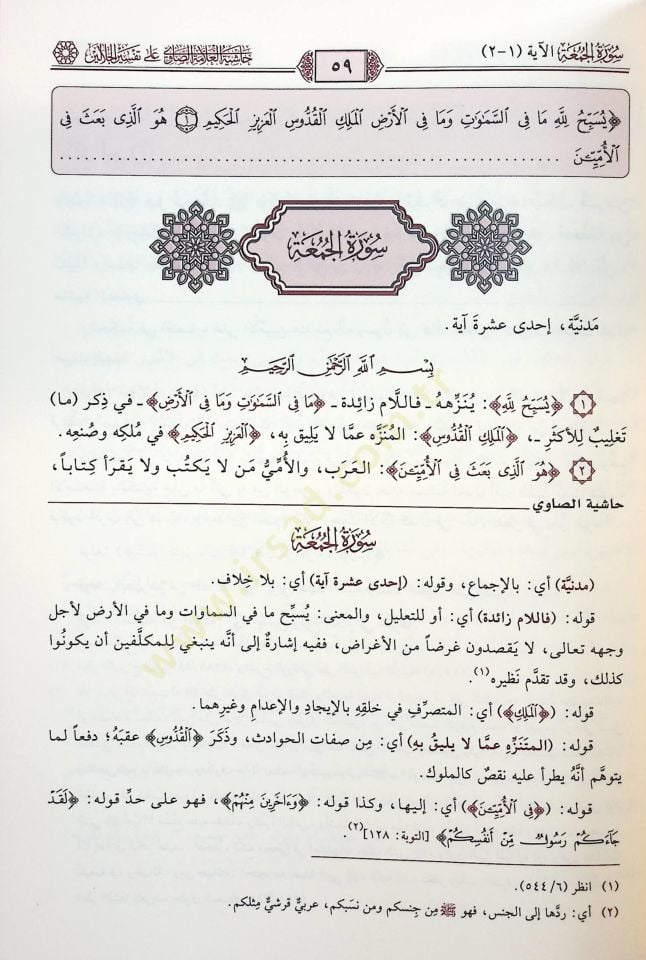 سُورَةُ الجُمُعَة الآية (١-٢)
٥٩
حاشية العلامة الصاوي على تفسير الجلالين
﴿يُسَبِّحُ لِلَّهِ مَا فِي السَّمَٰوَٰتِ وَمَا فِي الْأَرْضِ الْمَلِكِ الْقُدُّوسِ الْعَزِيزِ الْحَكِيمِ ۝١ هُوَ الَّذِي بَعَثَ فِي
الْأُمِّيِّـۧنَ ..........
سُورَةُ الجُمُعَة
مَدنيَّة، إحدى عشرةَ آية.
بِسْمِ اللَّهِ الرَّحْمَٰنِ الرَّحِيمِ
١ ﴿يُسَبِّحُ لِلَّهِ﴾: يُنَزِّههُ ـ فاللَّام زائدة ـ ﴿مَا فِي السَّمَٰوَٰتِ وَمَا فِي الْأَرْضِ﴾ ـ في ذِكر (ما)
تَغلِيبٌ لِلأكثرِ ـ، ﴿الْمَلِكِ الْقُدُّوسِ﴾: المُنَزَّه عمَّا لا يَلِيق بِه، ﴿الْعَزِيزِ الْحَكِيمِ﴾ في مُلكِه وصُنعِه.
٢ ﴿هُوَ الَّذِي بَعَثَ فِي الْأُمِّيِّـۧنَ﴾: العرَب، والأُمِّيُّ مَن لا يَكتُب ولا يَقرَأ كِتاباً،
حاشية الصاوي
سُورَةُ الجُمُعَة
(مدنيَّة) أي: بالإجماع، وقوله: (إحدى عشرة آية) أي: بلا خِلاف.
قوله: (فاللام زائدة) أي: أو للتعليل، والمعنى: يُسبِّح ما في السماوات وما في الأرض لأجل
وجهه تعالى، لا يَقصدون غرضاً من الأغراض، ففيه إشارةٌ إلى أنَّه ينبغي لِلمكلَّفين أن يكونُوا
كذلك، وقد تقدَّم نَظيره(١).
قوله: (﴿الْمَلِكِ﴾) أي: المتصرِّف في خلقِهِ بالإيجادِ والإعدامِ وغيرِهما.
قوله: (المتَنَزِّهِ عمَّا لا يليق بِهِ) أي: مِن صفات الحوادث، وذَكَرَ ﴿الْقُدُّوسِ﴾ عقبَهُ؛ دفعاً لما
يتوهَّم أنَّهُ يطرأ عليه نقصٌ كالملوك.
قوله: (﴿فِي الْأُمِّيِّـۧنَ﴾) أي: إليها، وكذا قوله: ﴿وَءَاخَرِينَ مِنْهُمْ﴾، فهو على حدِّ قوله: ﴿لَقَدْ
جَاءَكُمْ رَسُولٌ مِّنْ أَنفُسِكُمْ﴾ [التوبة: ١٢٨](٢).
(١) انظر (٥٤٤/٦).
(٢) أي: ردَّها إلى الجنس، فهو ﷺ مِن جِنسكم ومن نسَبكم، عربيٌّ قرشيٌّ مِثلكم.
www.irsad.com.tr